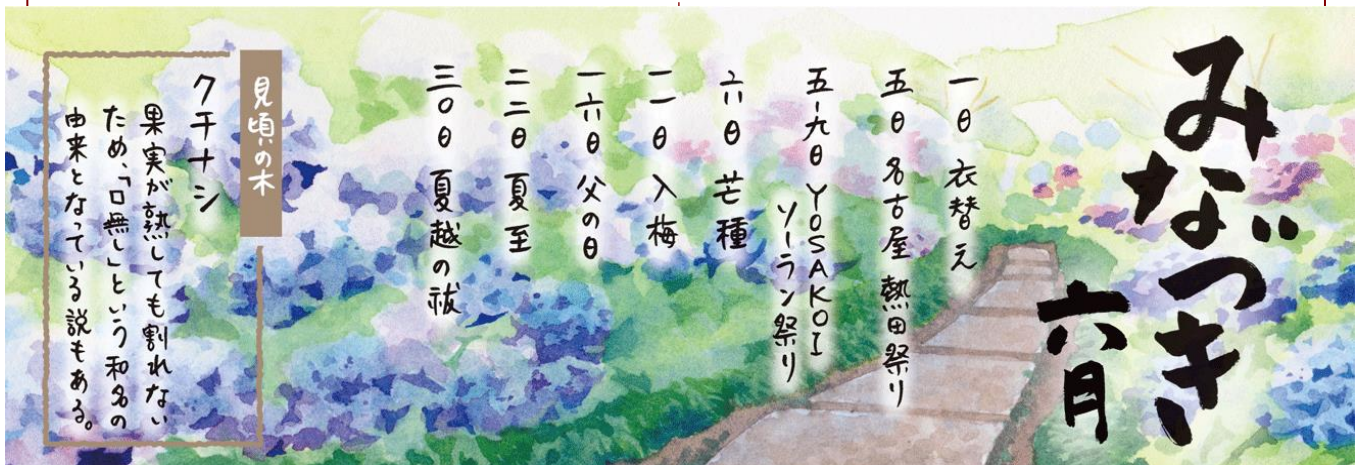 みなづき
六月
一日 衣替え
五日 名古屋 熱田祭り
五-九日 YOSAKOI
ソーラン祭り
六日 芒種
一一日 入梅
一六日 父の日
二二日 夏至
三〇日 夏越の祓
見頃の木
クチナシ
果実が熟しても割れない
ため、「口無し」という和名の
由来となっている説もある。